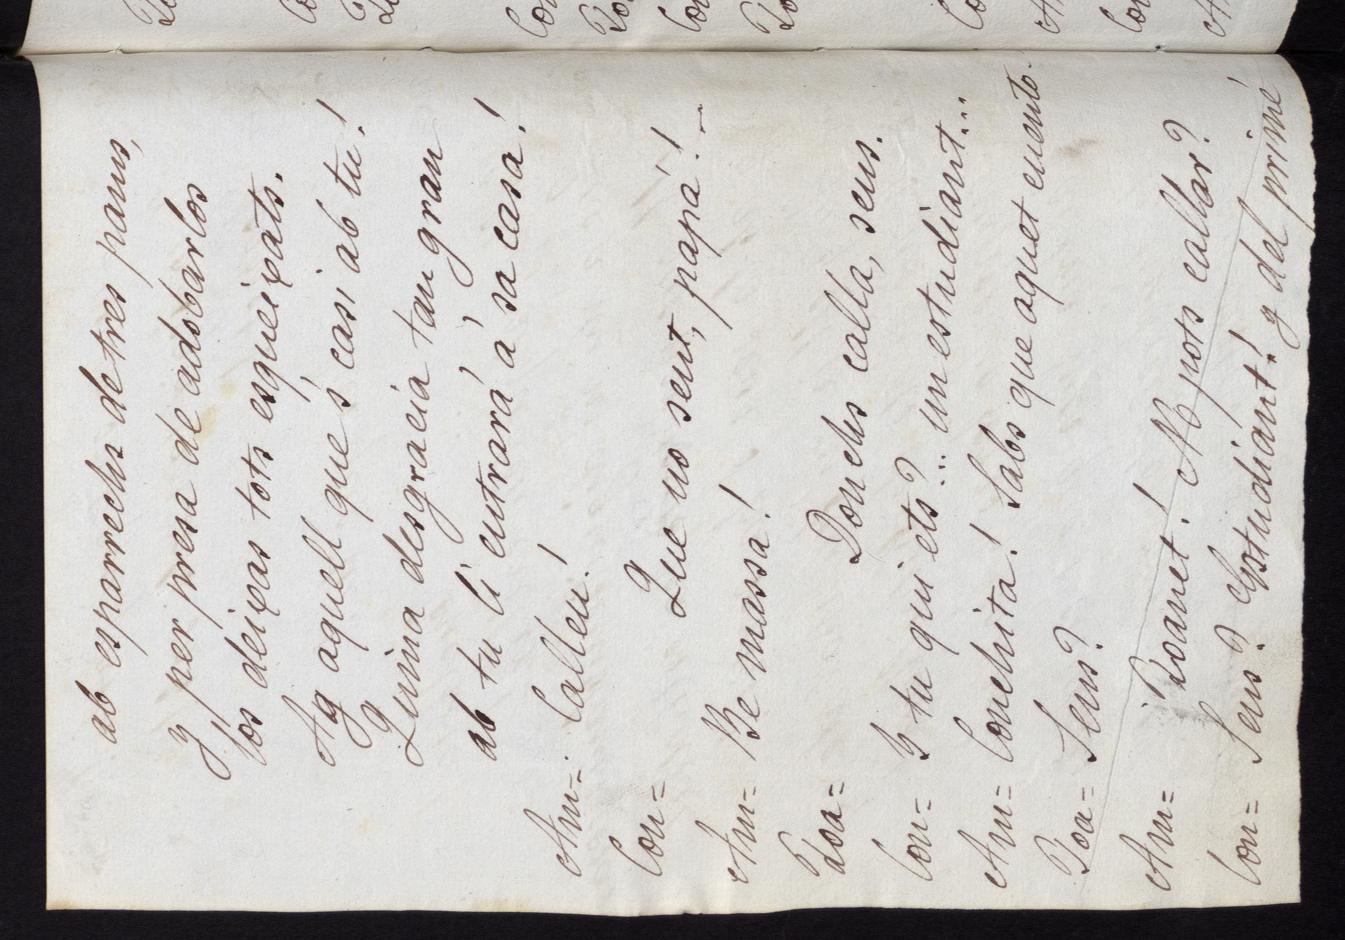 ab esparrechs de tres pams,
y per presa de adobarlos
los deixas tots esqueixats.
Ay aquell que 's casi ab tu!
Quina desgracia tan gran
ab tu li entrará á sa casa!
Am=. Calleu!
Con= Que no sent, papá!
Am= Be massa!
Joa= Donchs calla, sens.
Con= Y tu qui ets?.. un estudiant...
Am= Conchita! Sabs que aquet cuento.
Joa= Sens?
Am= ¡Joanet! No pots callar?
Con= Sens? Estudiant! y del primé